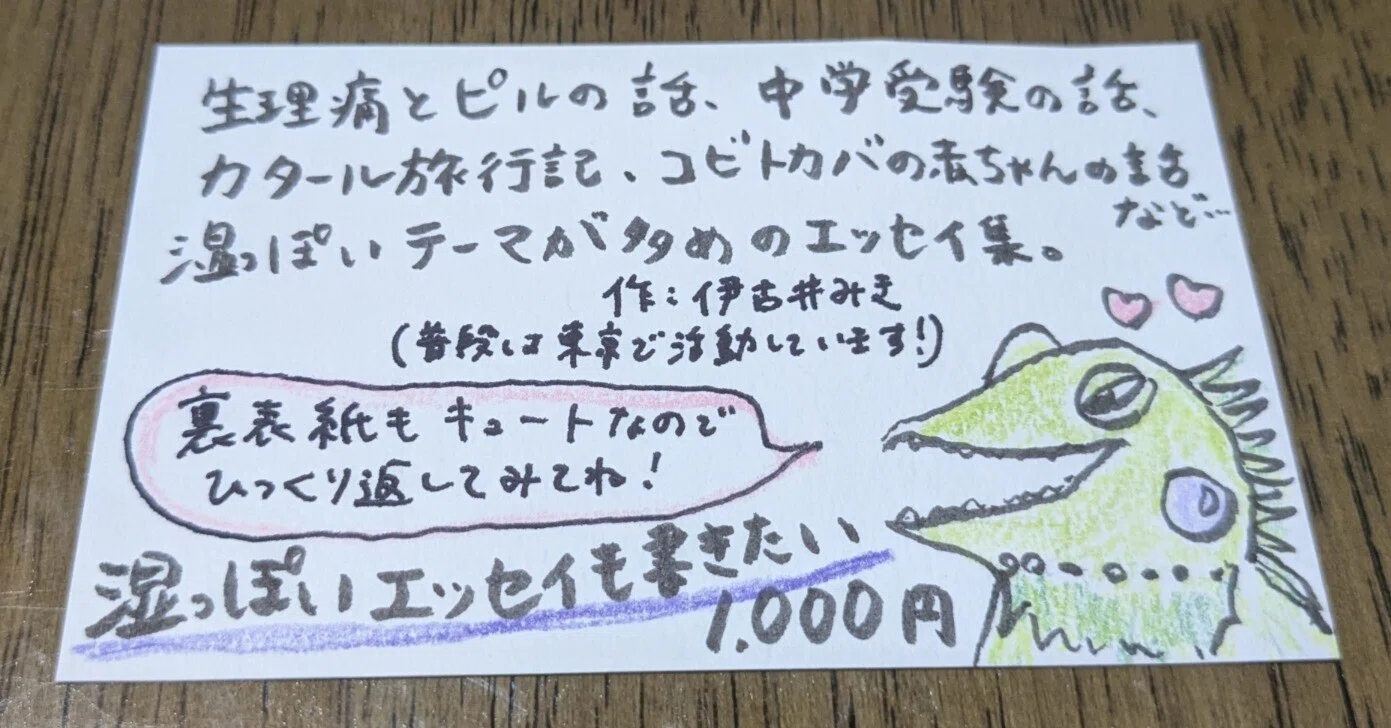 生理痛とピルの話、中学受験の話、
カタール旅行記、コビトカバの赤ちゃんの話
など…
湿っぽいテーマが多めのエッセイ集。
作:伊古井みき
(普段は東京で活動しています!)
裏表紙もキュートなので
ひっくり返してみてね!
湿っぽいエッセイも書きたい
1.000円